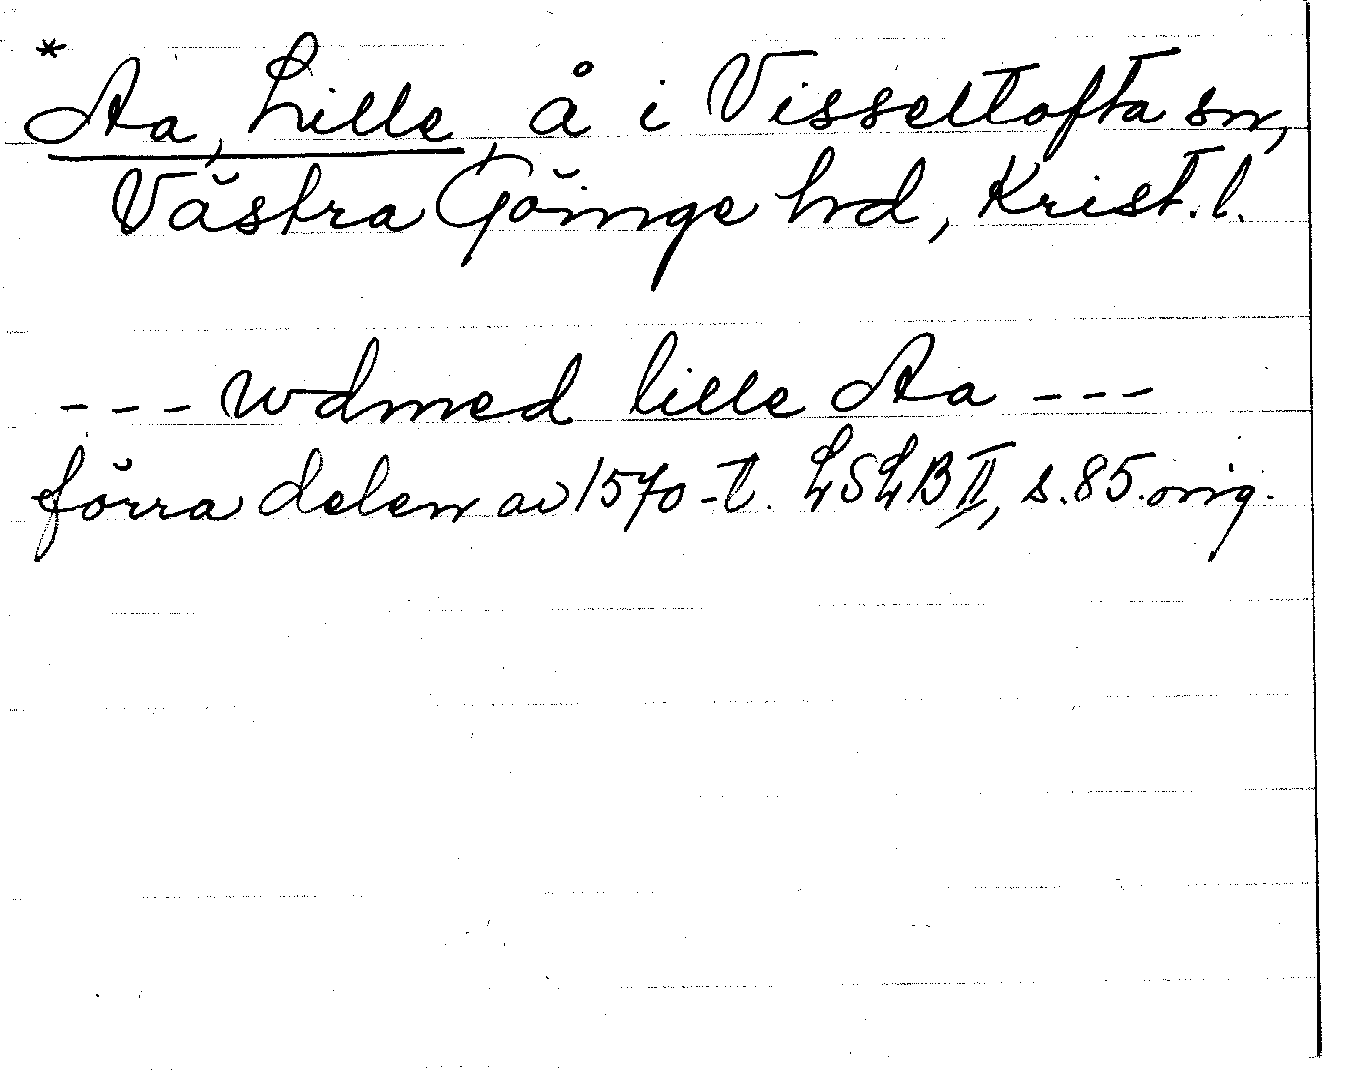 * Aa, Lille, å i Visseltofta sn,
Västra Göinge hd, Krist. l.
--- wdmed lille Aa ---
förra delen av 1570-t. LSLB II, s. 85. orig.